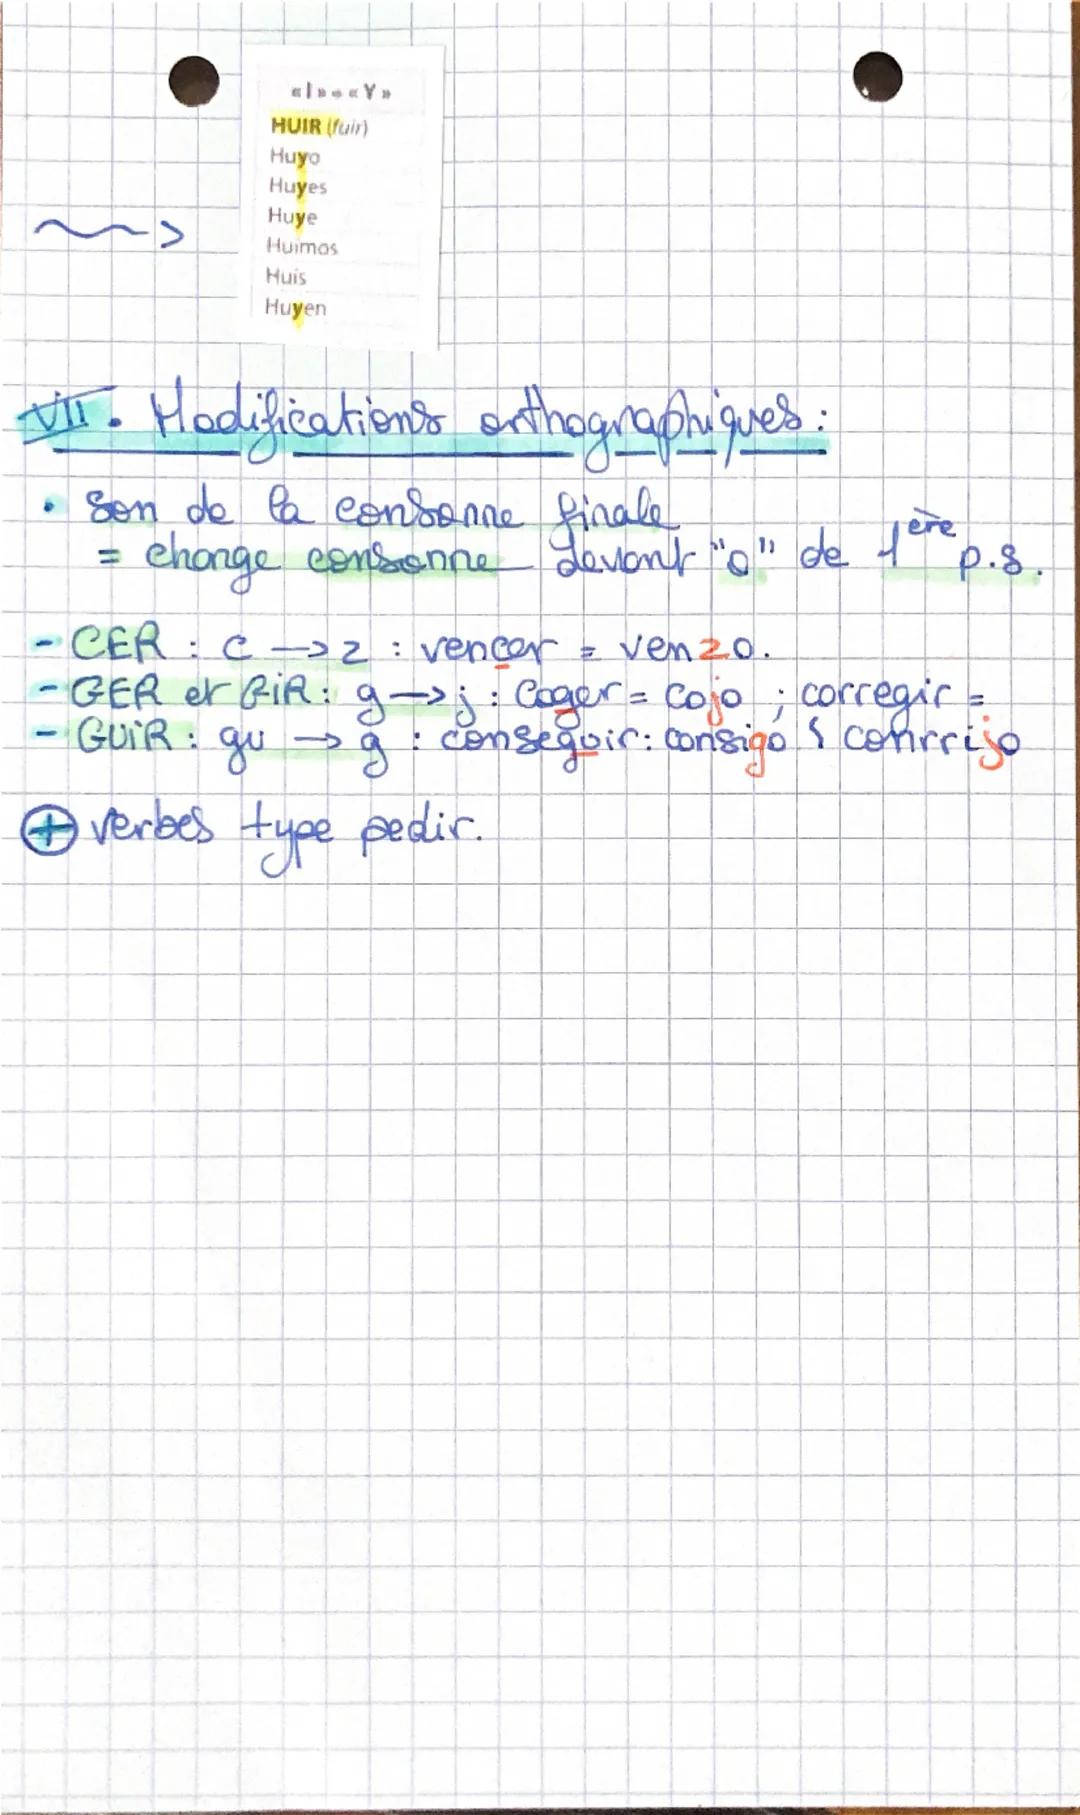 « I » « Y »
HUIR (fuir)
Huyo
Huyes
Huye
Huimos
Huis
Huyen
VII. Modifications orthographiques :
• son de la consonne finale
= change consonne devant "o" de 1ère p.s.
- CER : c → z : vencer = venzo.
- GER et GiR : g → j : Coger = cojo ; corregir =
- GUiR : gu → g : conseguir : consigo. corrijo
⊕ verbes type pedir.